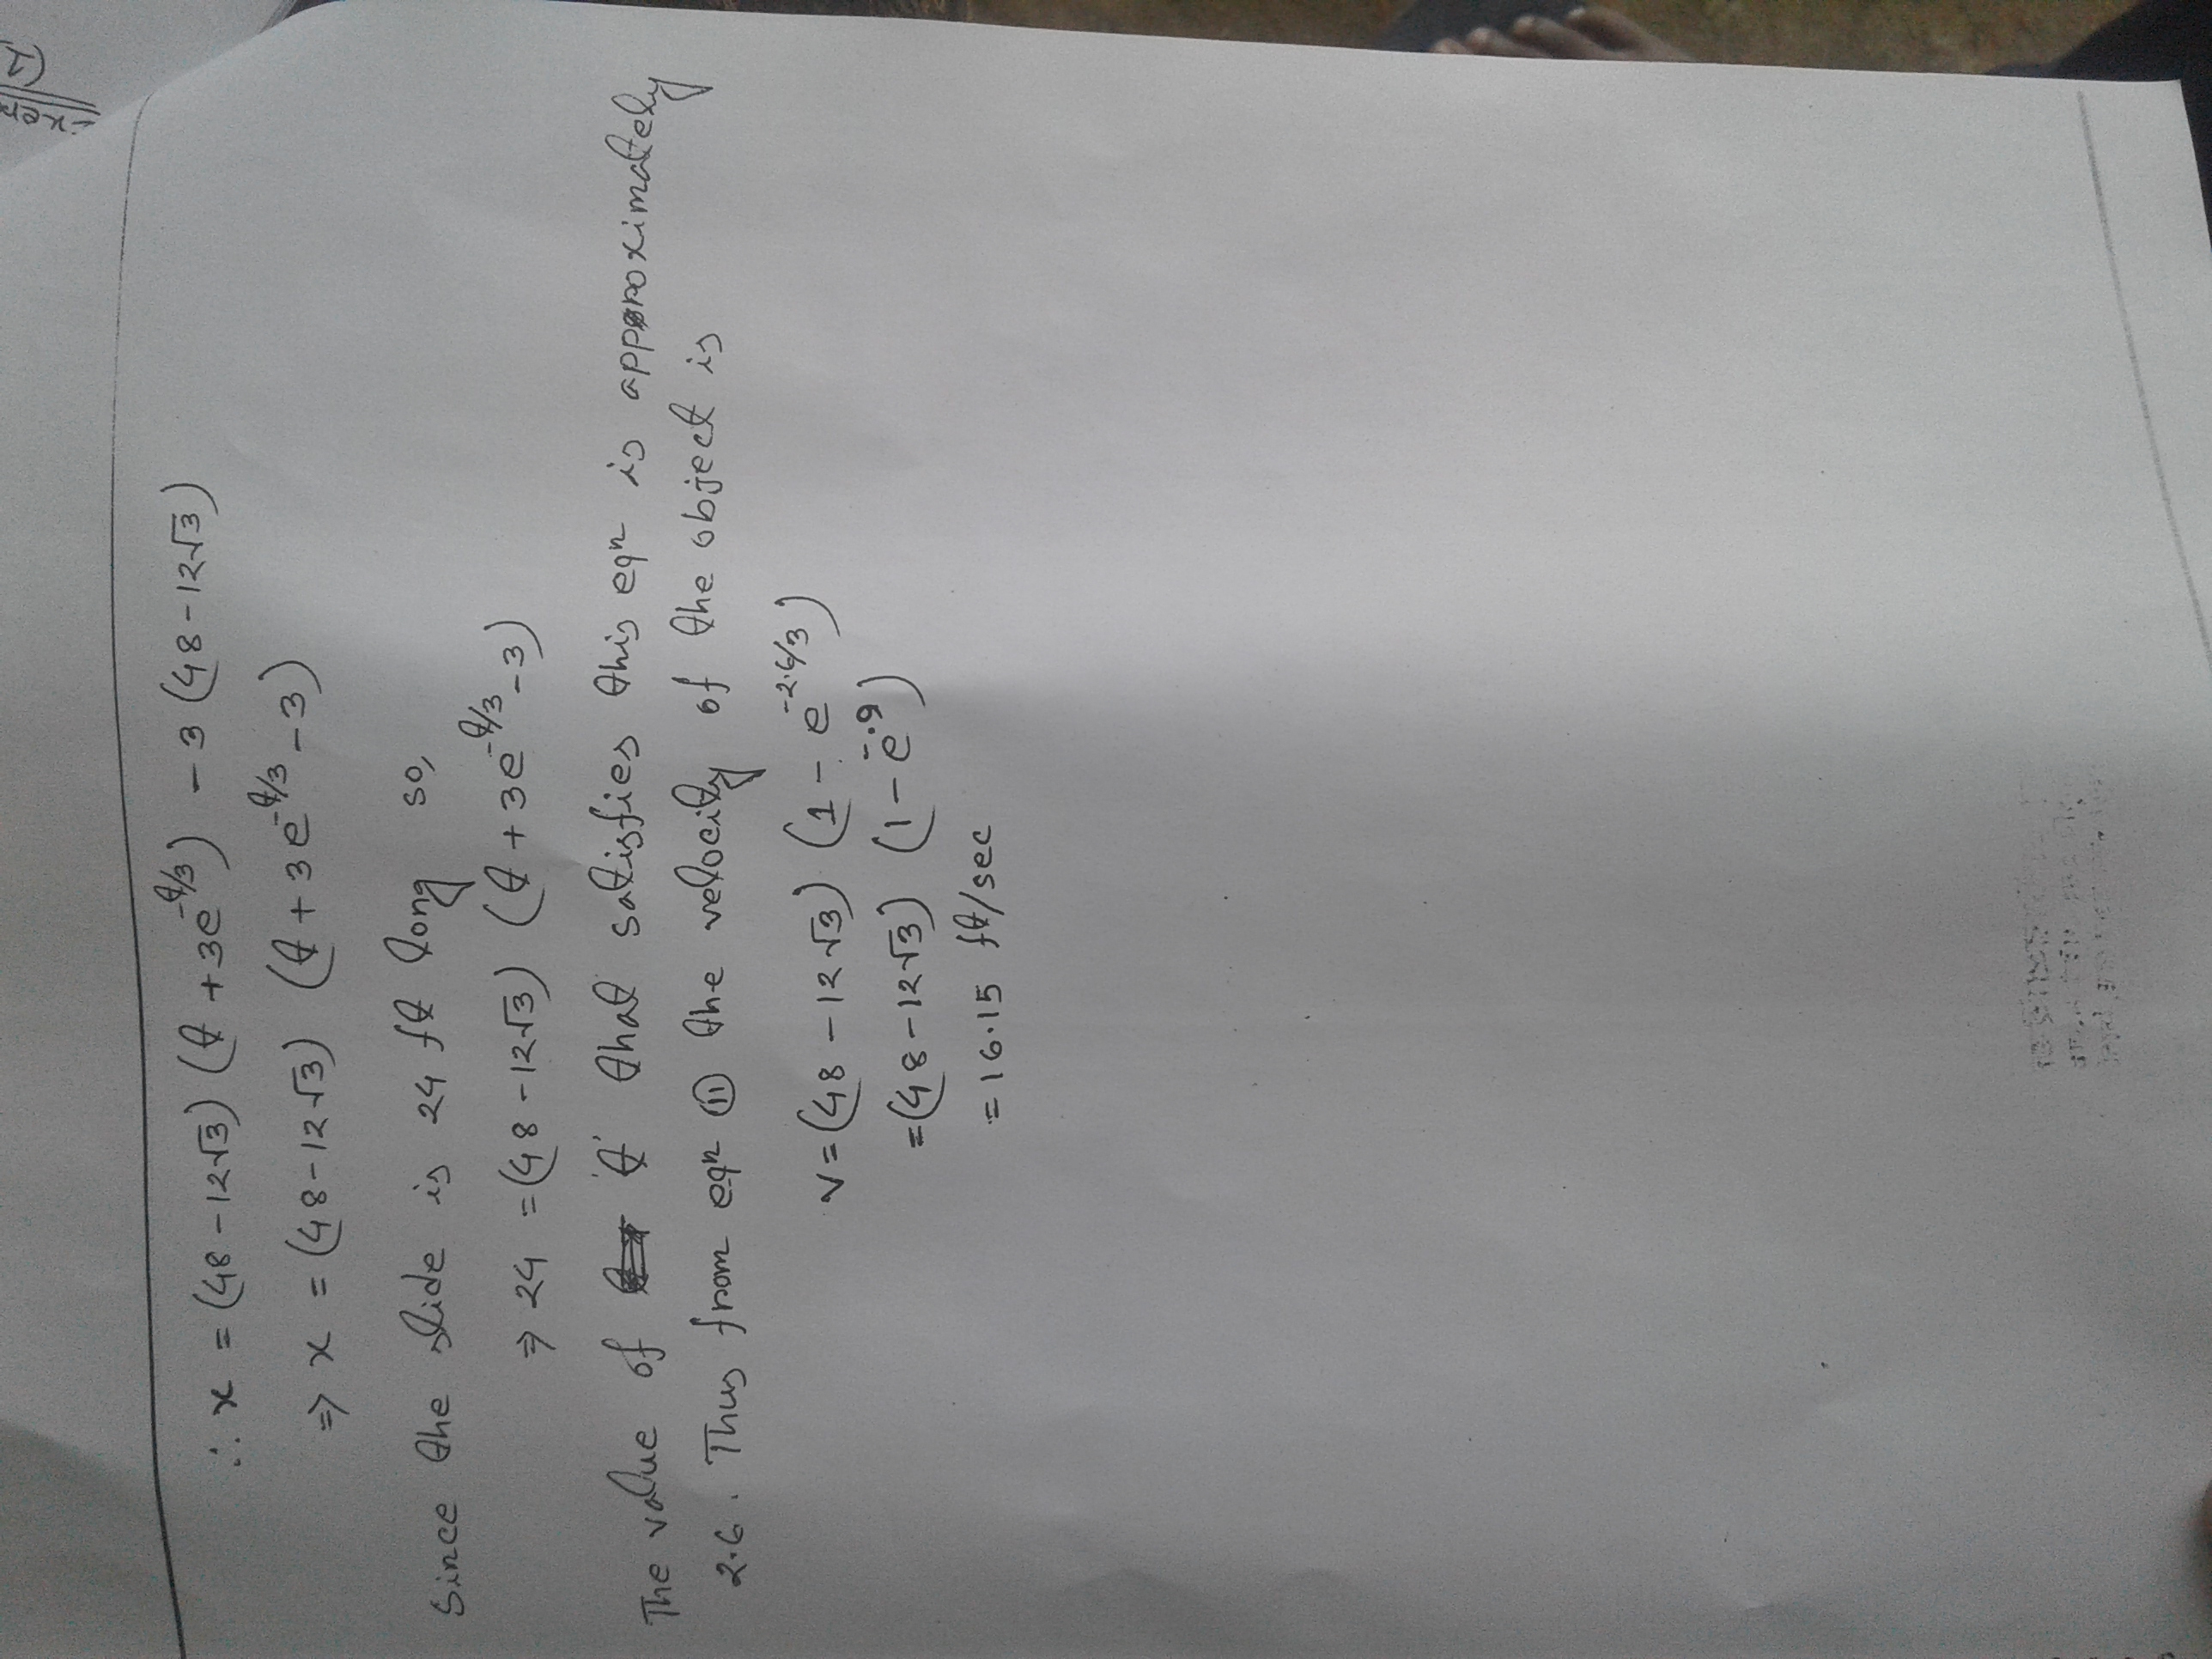 ∴ x = (48 - 12√3) (t + 3e^{-t/3}) - 3 (48 - 12√3)
⇒ x = (48 - 12√3) (t + 3e^{-t/3} - 3)
Since the slide is 24 ft long so,
⇒ 24 = (48 - 12√3) (t + 3e^{-t/3} - 3)
The value of 't' that satisfies this eqn is approximately
2.6. Thus from eqn (ii) the velocity of the object is
v = (48 - 12√3) (1 - e^{-2.6/3})
= (48 - 12√3) (1 - e^{-.9})
= 16.15 ft/sec
(1